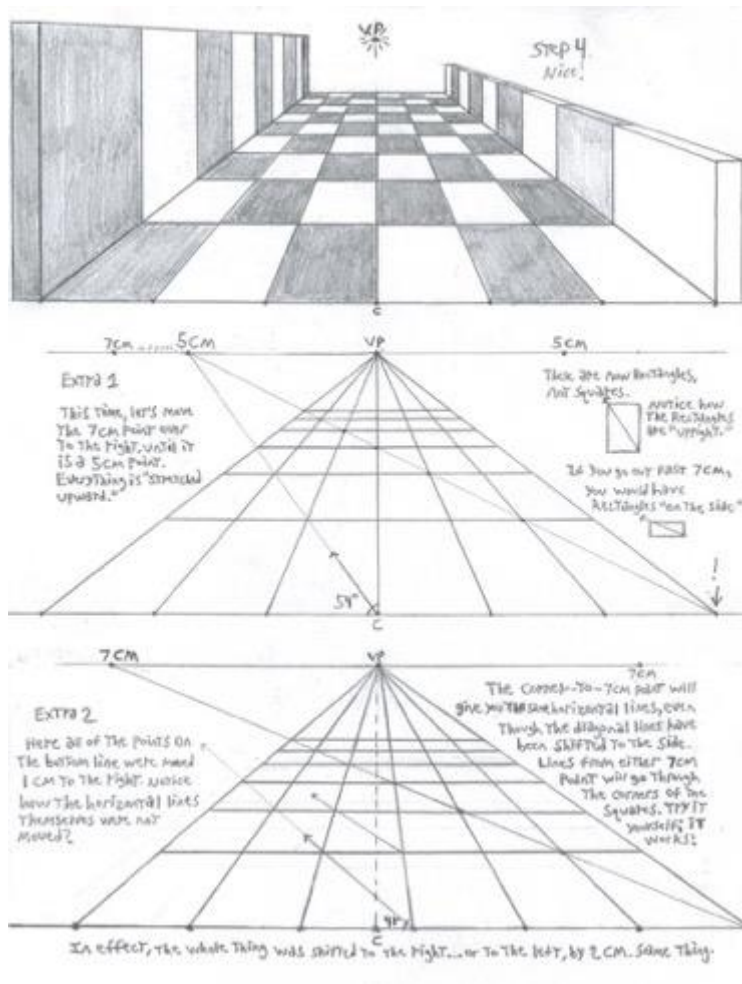 VP
Step 4
Nice!
C
7cm......5cm
VP
5cm
Extra 1
This time, let's move
the 7cm point over
to the right, until it
is a 5cm point.
Everything is "stretched
upward."
These are now Rectangles,
not squares.
Notice how
the Rectangles
are "upright."
If you go out past 7cm,
you would have
Rectangles "on the side"
!
54°
C
7cm
VP
7cm
Extra 2
Here all of the points on
the bottom line were moved
1 cm to the right. Notice
how the horizontal lines
themselves were not
moved?
The corner-to-7cm point will
give you the same horizontal lines, even
though the diagonal lines have
been shifted to the side.
Lines from either 7cm
point will go through
the corners of the
squares. Try it
yourself; it
works!
C
In effect, the whole thing was shifted to the right...or to the left, by 2 cm. Same thing.